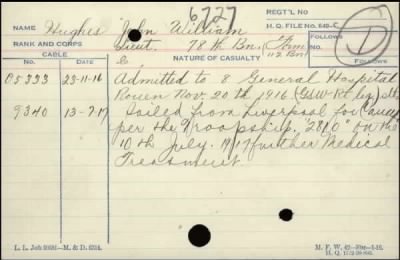 6727
NAME Hughes John William REGT'L NO
H.Q. FILE No. 649-C
RANK AND CORPS Lieut. 78th Bn. (From 112 Bn)
D
CABLE DATE NATURE OF CASUALTY
C.
05333 23-11-16 Admitted to 8 General Hospital
Rouen Nov. 20th 1916 (GSW Rt leg)
9340 13-7-17 Sailed from Liverpool for Canada
per the Troopship "2810" on the
10th July. 1917 further Medical
Treatment.
L. L. Job M. & D.
M. F. W. 42
H. Q. 1772-39-893.